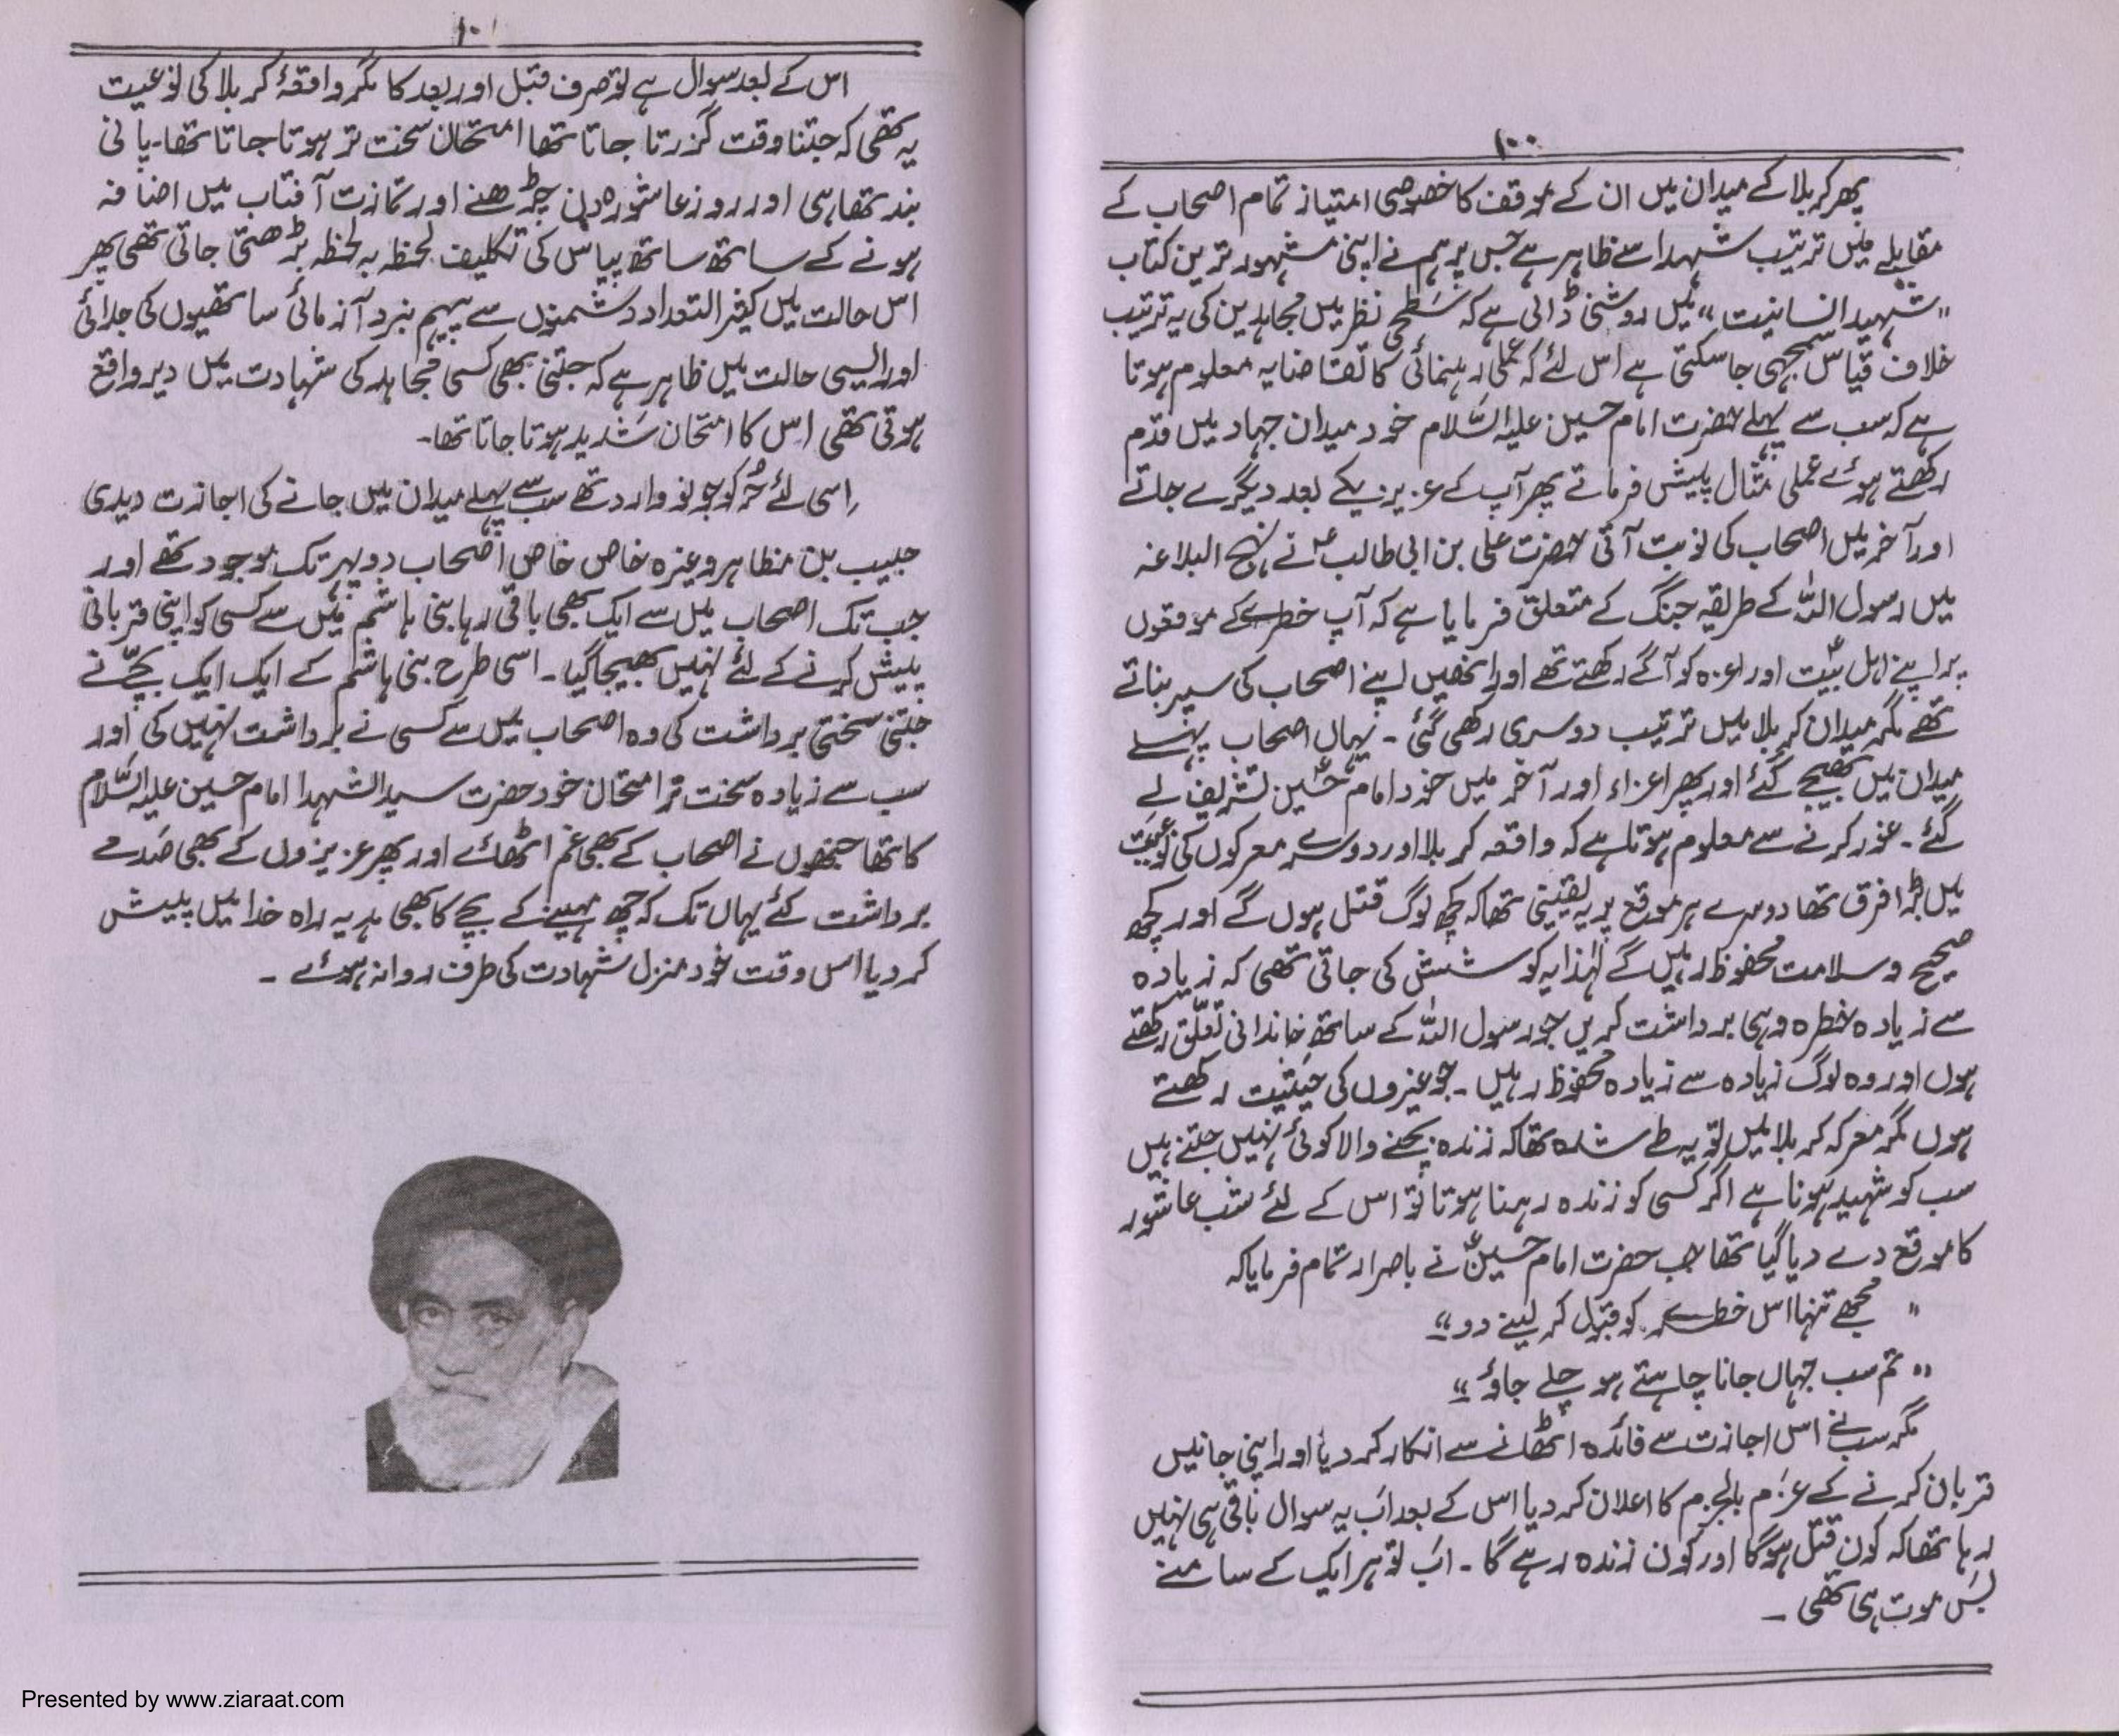 ۱۰۰
پھر کربلا کے میدان میں ان کے موقف کا خصوصی امتیاز تمام اصحاب کے
مقابلے میں ترتیب شہدا سے ظاہر ہے جس پر ہم نے اپنی مشہور ترین کتاب
"شہید انسانیت" میں روشنی ڈالی ہے کہ سطحی نظر میں مجاہدین کی یہ ترتیب
خلاف قیاس سمجھی جا سکتی ہے اس لئے کہ عملی رہنمائی کا تقاضا یہ معلوم ہوتا
ہے کہ سب سے پہلے حضرت امام حسین علیہ السّلام خود میدان جہاد میں قدم
رکھتے ہوئے عملی مثال پیش فرماتے پھر آپ کے عزیز یکے بعد دیگرے جاتے
اور آخر میں اصحاب کی نوبت آتی حضرت علی بن ابی طالبؑ نے نہج البلاغہ
میں رسول اللہ کے طریقہ جنگ کے متعلق فرمایا ہے کہ آپ خطرے کے موقعوں
پر اپنے اہل بیتؑ اور اعزہ کو آگے رکھتے تھے اور انھیں اپنے اصحاب کی سپر بناتے
تھے مگر میدان کربلا میں ترتیب دوسری رکھی گئی ۔ یہاں اصحاب پہلے
میدان میں بھیجے گئے اور پھر اعزاء اور آخر میں خود امام حسینؑ تشریف لے
گئے ۔ غور کرنے سے معلوم ہوتا ہے کہ واقعہ کربلا اور دوسرے معرکوں کی نوعیت
میں بڑا فرق تھا دوسرے ہر موقع پر یہ یقینی تھا کہ کچھ لوگ قتل ہوں گے اور کچھ
صحیح و سلامت محفوظ رہیں گے لہٰذا یہ کوشش کی جاتی تھی کہ زیادہ
سے زیادہ خطرہ وہی برداشت کریں جو رسول اللہ کے ساتھ خاندانی تعلّق رکھتے
ہوں اور وہ لوگ زیادہ سے زیادہ محفوظ رہیں ۔ جو غیروں کی حیثیت رکھتے
ہوں مگر معرکہ کربلا میں تو یہ طے شدہ تھا کہ زندہ بچنے والا کوئی نہیں جتنے ہیں
سب کو شہید ہونا ہے اگر کسی کو زندہ رہنا ہوتا تو اس کے لئے شب عاشور
کا موقع دے دیا گیا تھا جب حضرت امام حسینؑ نے باصرار تمام فرمایا کہ
" مجھے تنہا اس خطرے کو قبول کر لینے دو"
"تم سب جہاں جانا چاہتے ہو چلے جاؤ"
مگر سب نے اس اجازت سے فائدہ اٹھانے سے انکار کر دیا اور اپنی جانیں
قربان کرنے کے عزم بالجزم کا اعلان کر دیا اس کے بعد اب یہ سوال باقی ہی نہیں
رہا تھا کہ کون قتل ہوگا اور کون زندہ رہے گا ۔ اب تو ہر ایک کے سامنے
بس موت ہی تھی ۔
۱۰۱
اس کے بعد سوال ہے تو صرف قبل اور بعد کا مگر واقعۂ کربلا کی نوعیت
یہ تھی کہ جتنا وقت گزرتا جاتا تھا امتحان سخت تر ہوتا جاتا تھا ۔ پانی
بند تھا ہی اور روز عاشورہ دن چڑھنے اور تمازت آفتاب میں اضافہ
ہونے کے ساتھ ساتھ پیاس کی تکلیف لحظہ بہ لحظہ بڑھتی جاتی تھی پھر
اس حالت میں کثیر التعداد دشمنوں سے پیہم نبرد آزمائی ساتھیوں کی جدائی
اور ایسی حالت میں ظاہر ہے کہ جتنی بھی کسی مجاہد کی شہادت میں دیر واقع
ہوتی تھی اس کا امتحان شدید ہوتا جاتا تھا۔
اسی لئے حُر کو جو نو وارد تھے سب سے پہلے میدان میں جانے کی اجازت دیدی
حبیب بن مظاہر وغیرہ خاص خاص اصحاب دوپہر تک موجود تھے اور
جب تک اصحاب میں سے ایک بھی باقی رہا بنی ہاشم میں سے کسی کو اپنی قربانی
پیش کرنے کے لئے نہیں بھیجا گیا ۔ اسی طرح بنی ہاشم کے ایک ایک بچّے نے
جتنی سختی برداشت کی وہ اصحاب میں سے کسی نے برداشت نہیں کی اور
سب سے زیادہ سخت تر امتحان خود حضرت سید الشہدا امام حسین علیہ السّلام
کا تھا جنھوں نے اصحاب کے بھی غم اٹھائے اور پھر عزیزوں کے بھی صدمے
برداشت کئے یہاں تک کہ چھ مہینے کے بچے کا بھی ہدیہ راہ خدا میں پیش
کر دیا اس وقت خود منزل شہادت کی طرف روانہ ہوئے ۔
Presented by www.ziaraat.com